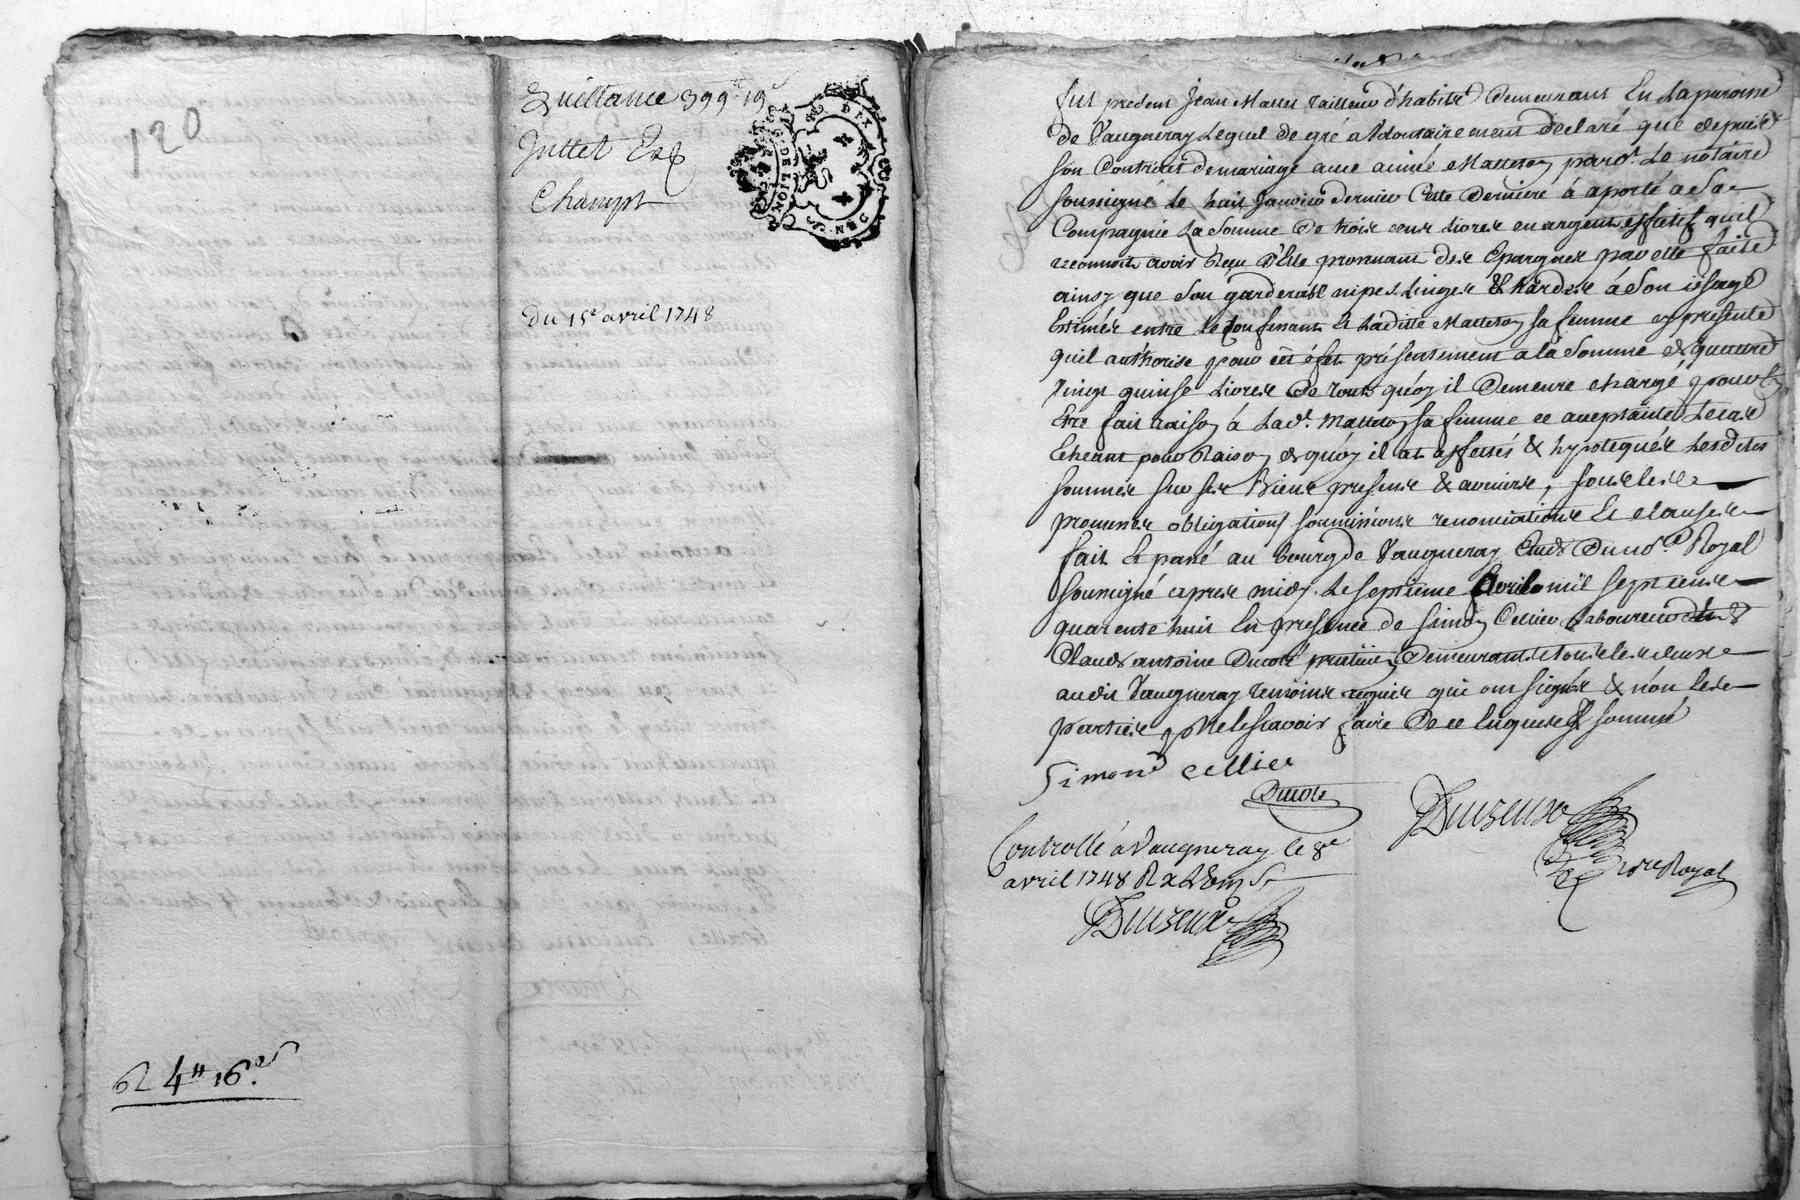 120
Quittance 399# 19s
Juttet Et
Champt
GEN. DE LION
DIX DEN
Du 15e avril 1748
R 4# 16s
fut présent Jean Mattet tailleur d'habits Demeurant En Laparoisse
de Vaugneray Lequel de gré a Volontairement declaré que depuis
son Contract demariage avec aimée Matteton pard.t Le notaire
soussigné le huit Janvier dernier Cette Derniere à aporté a Sa
Compagnie La Somme De trois cent Livres en argent effectif quil
reconnoit avoir Reçu d'Elle provenant des Epargnes par elle faite
ainsy que Son garderobe nipes Linges & hardes à Son usage
Estimés entre le Confessant Et Laditte Matteton sa femme cy presente
quil authorise pour cet éfet présentement a la Somme de quatre
Vingt quinse Livres De tout quoy il Demeure chargé pour
Etre fait raison à Lad.e Matteton sa femme ce aceptante Lecas
Echeant pour Raison de quoy il at affectés & hypotequés Lesdites
sommes sur ses Biens presens & avenirs, sous les
promesses obligations soumissions renonciations Et clauses
fait Et passé au bourg de Vaugneray Etude Dunore Royal
soussigné apres midy Le septieme Avril mil sept cens
quarente huit En presence de Simon Cellier Laboureur &
Claude antoine Ducote praticien Demeurants tous les deux
audit Vaugneray temoins requis qui ont signés & non les
parties p.r ne le scavoir faire De ce Enquises & sommé
Simond Cellier
Ducote
Duvzeuxe
nore Royal
Controllé à Vaugneray le 8e
avril 1748 R